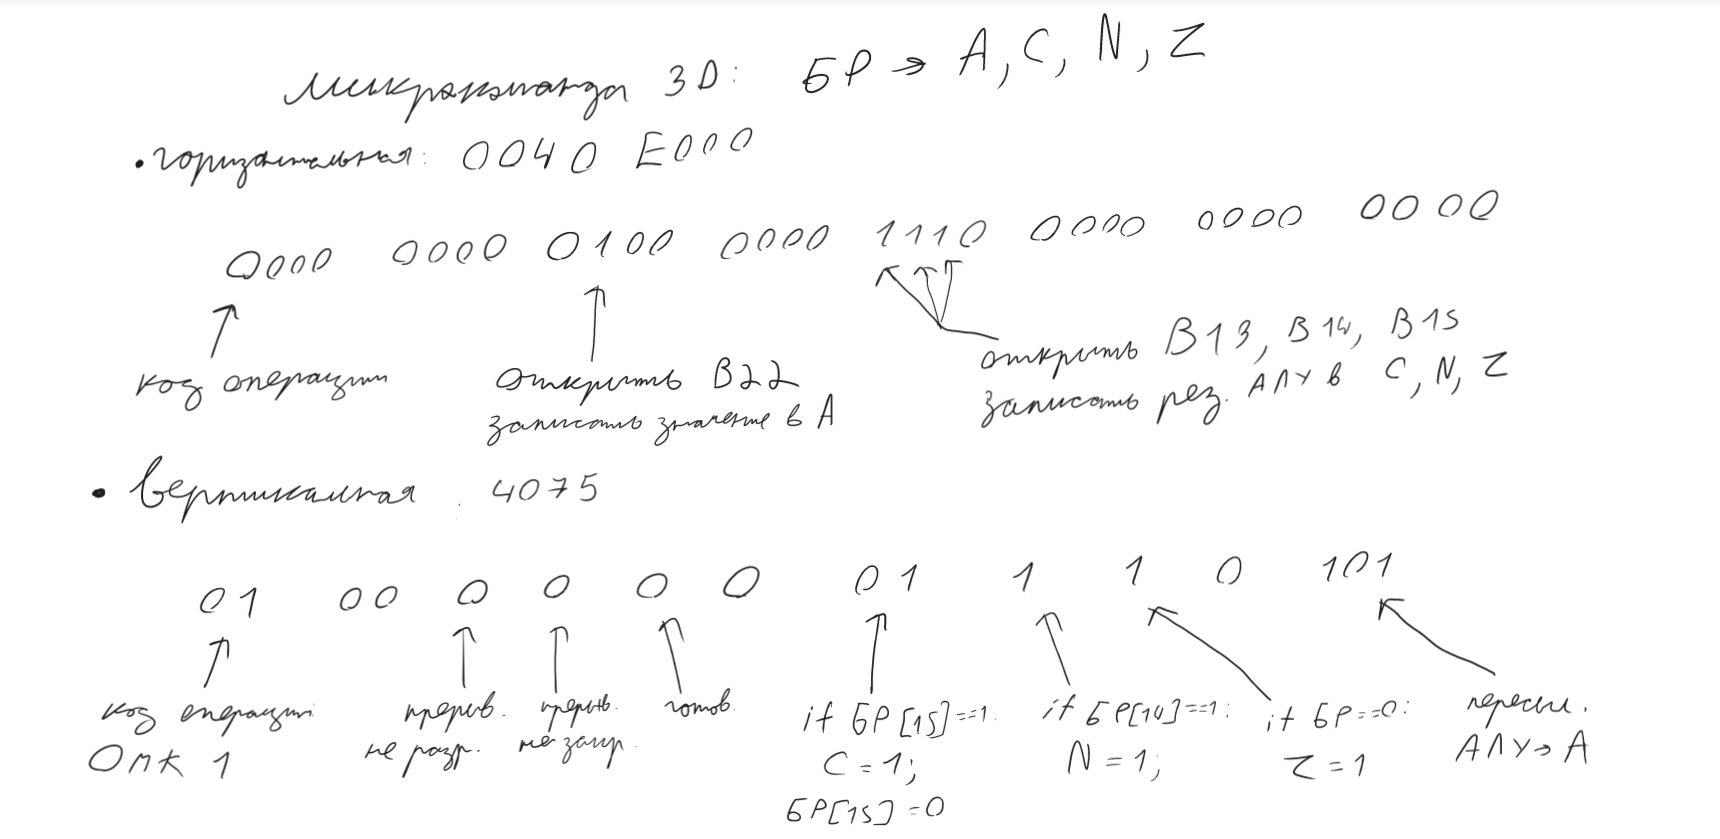 Микрокоманда 3D: БР → A, C, N, Z
• горизонтальная: 0040 E000
0000 0000 0100 0000 1110 0000 0000 0000
код операции
открыть B22
записать значение в A
открыть B13, B14, B15
записать рез. АЛУ в C, N, Z
• Вертикальная 4075
01 00 0 0 0 0 01 1 1 0 101
код операции
ОМК 1
прерыв.
не разр.
прерыв.
не запр.
готов.
if БР[15]==1
C=1;
БР[15]=0
if БР[14]==1:
N=1;
if БР==0:
Z=1
пересыл.
АЛУ→A